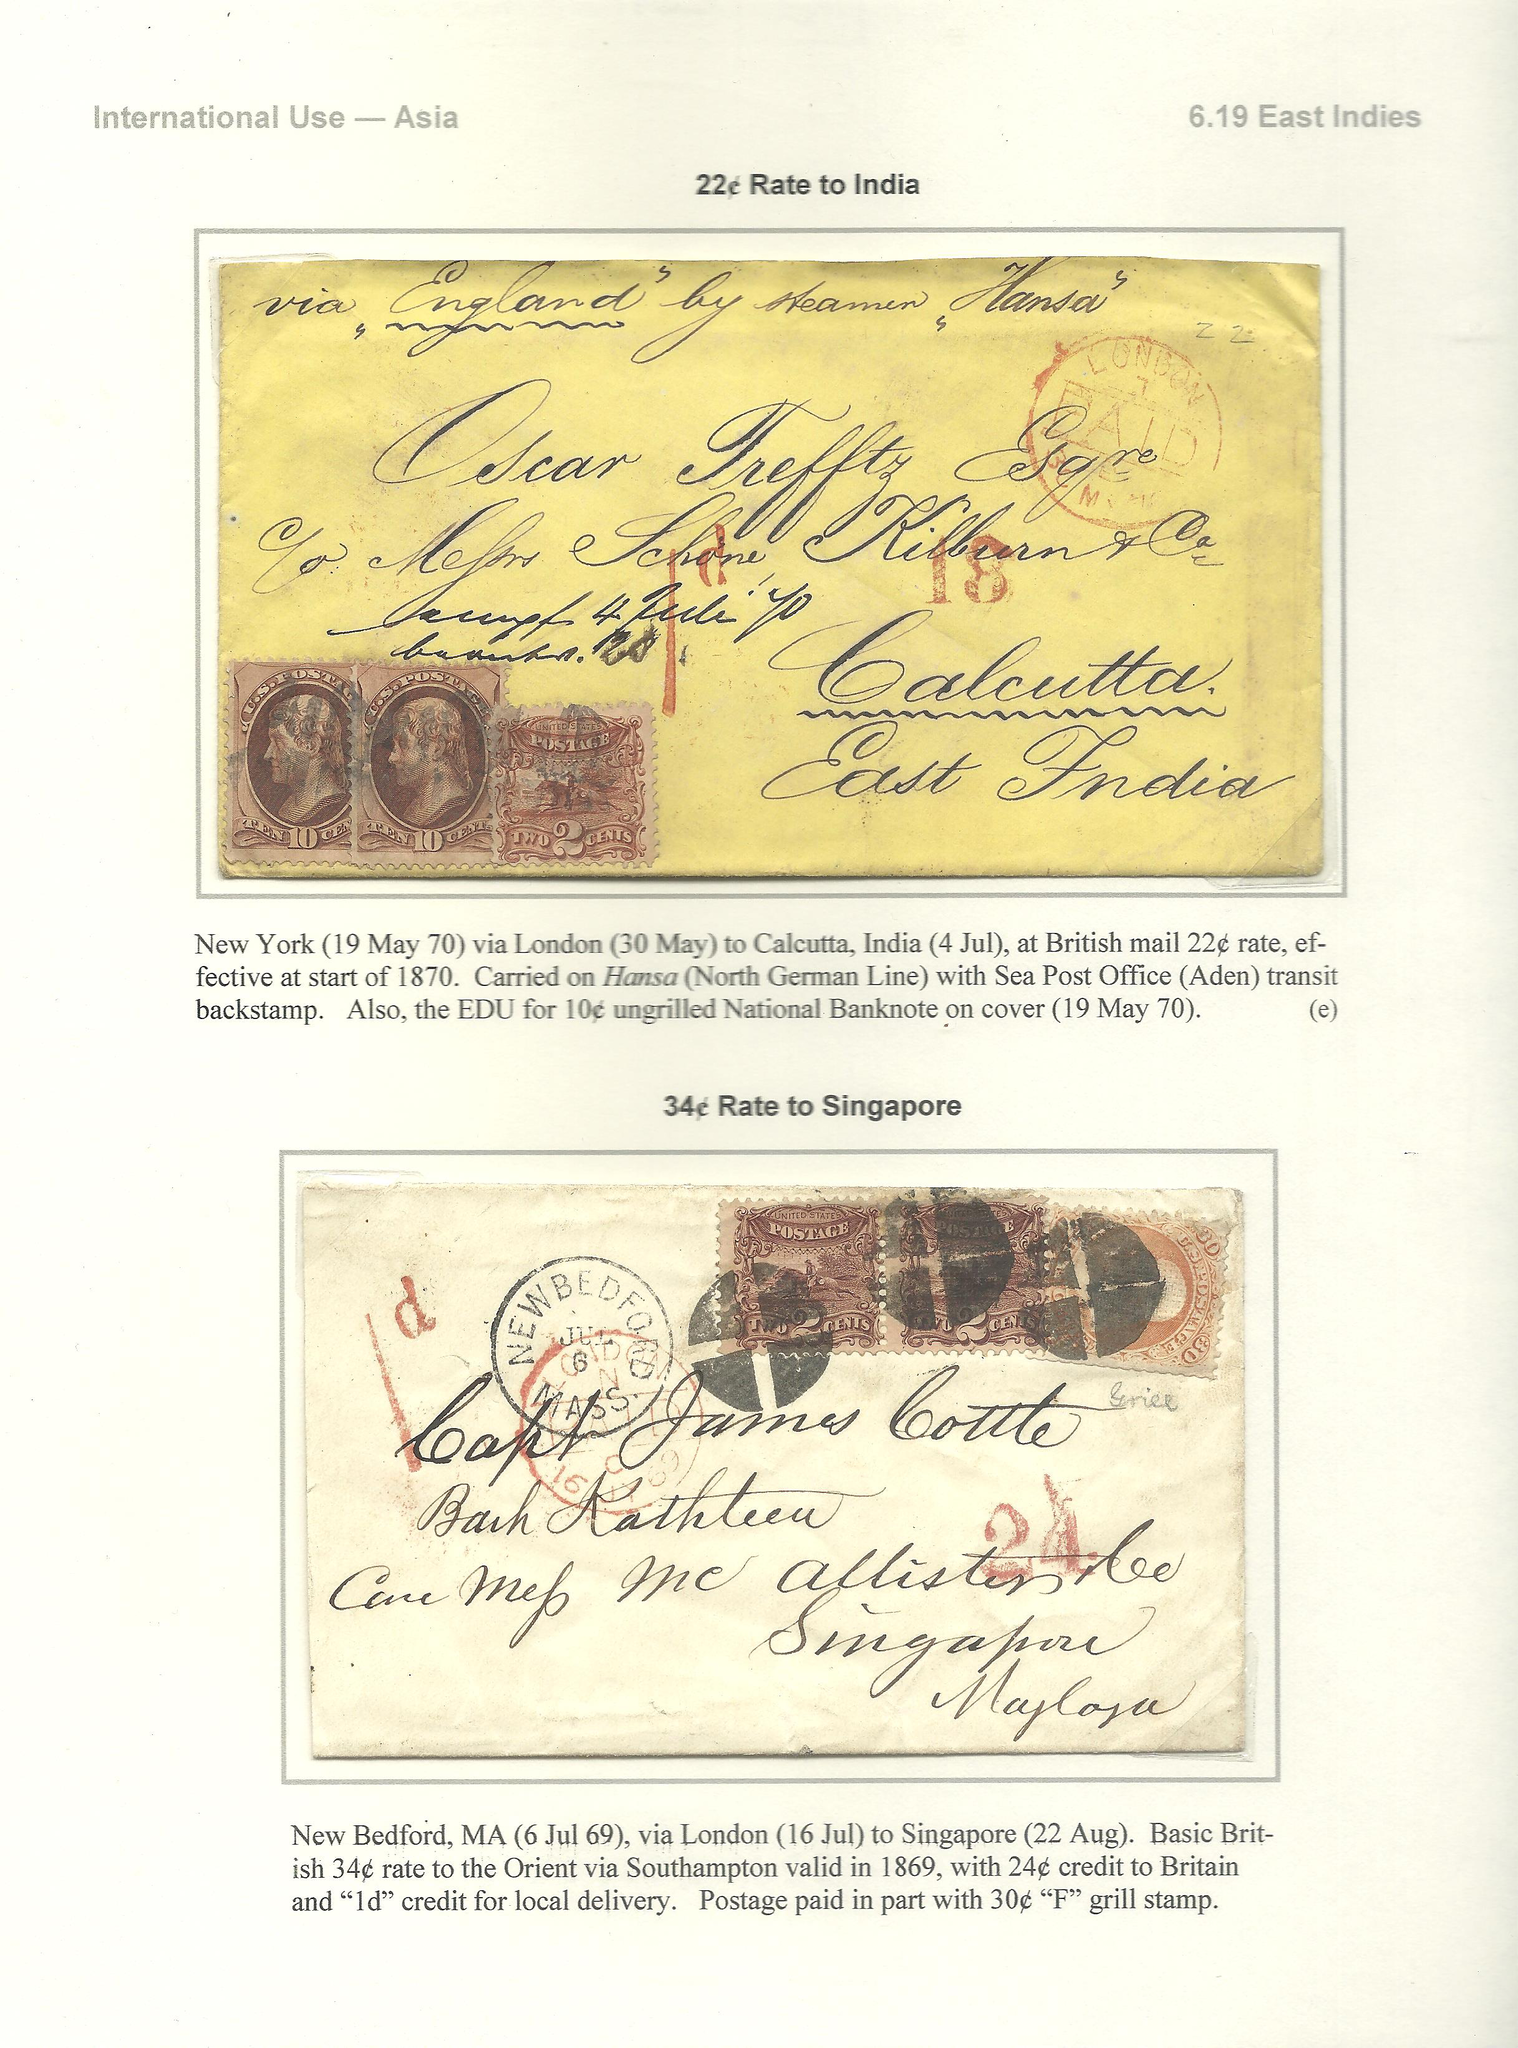 International Use — Asia 6.19 East Indies
22¢ Rate to India
via „England" by steamer „Hansa"
22
LONDON
7
PAID
Oscar Trefftz Esqre
c/o Messrs Schöne, Kilburn & Co
1d
18
4 Juli 70
Calcutta.
East India
U.S. POSTAGE
TEN 10 CENTS
U.S. POSTAGE
TEN 10 CENTS
UNITED STATES
POSTAGE
TWO 2 CENTS
New York (19 May 70) via London (30 May) to Calcutta, India (4 Jul), at British mail 22¢ rate, ef-
fective at start of 1870. Carried on Hansa (North German Line) with Sea Post Office (Aden) transit
backstamp. Also, the EDU for 10¢ ungrilled National Banknote on cover (19 May 70). (e)
34¢ Rate to Singapore
UNITED STATES
POSTAGE
TWO 2 CENTS
POSTAGE
TWO 2 CENTS
30 U.S. POSTAGE 30
1d
NEW BEDFORD
JUL
6
MASS.
Grill
Capt James Cottle
Bark Kathleen
24
Care Mess Mc Allister & Co
Singapore
New Bedford, MA (6 Jul 69), via London (16 Jul) to Singapore (22 Aug). Basic Brit-
ish 34¢ rate to the Orient via Southampton valid in 1869, with 24¢ credit to Britain
and “1d” credit for local delivery. Postage paid in part with 30¢ “F” grill stamp.